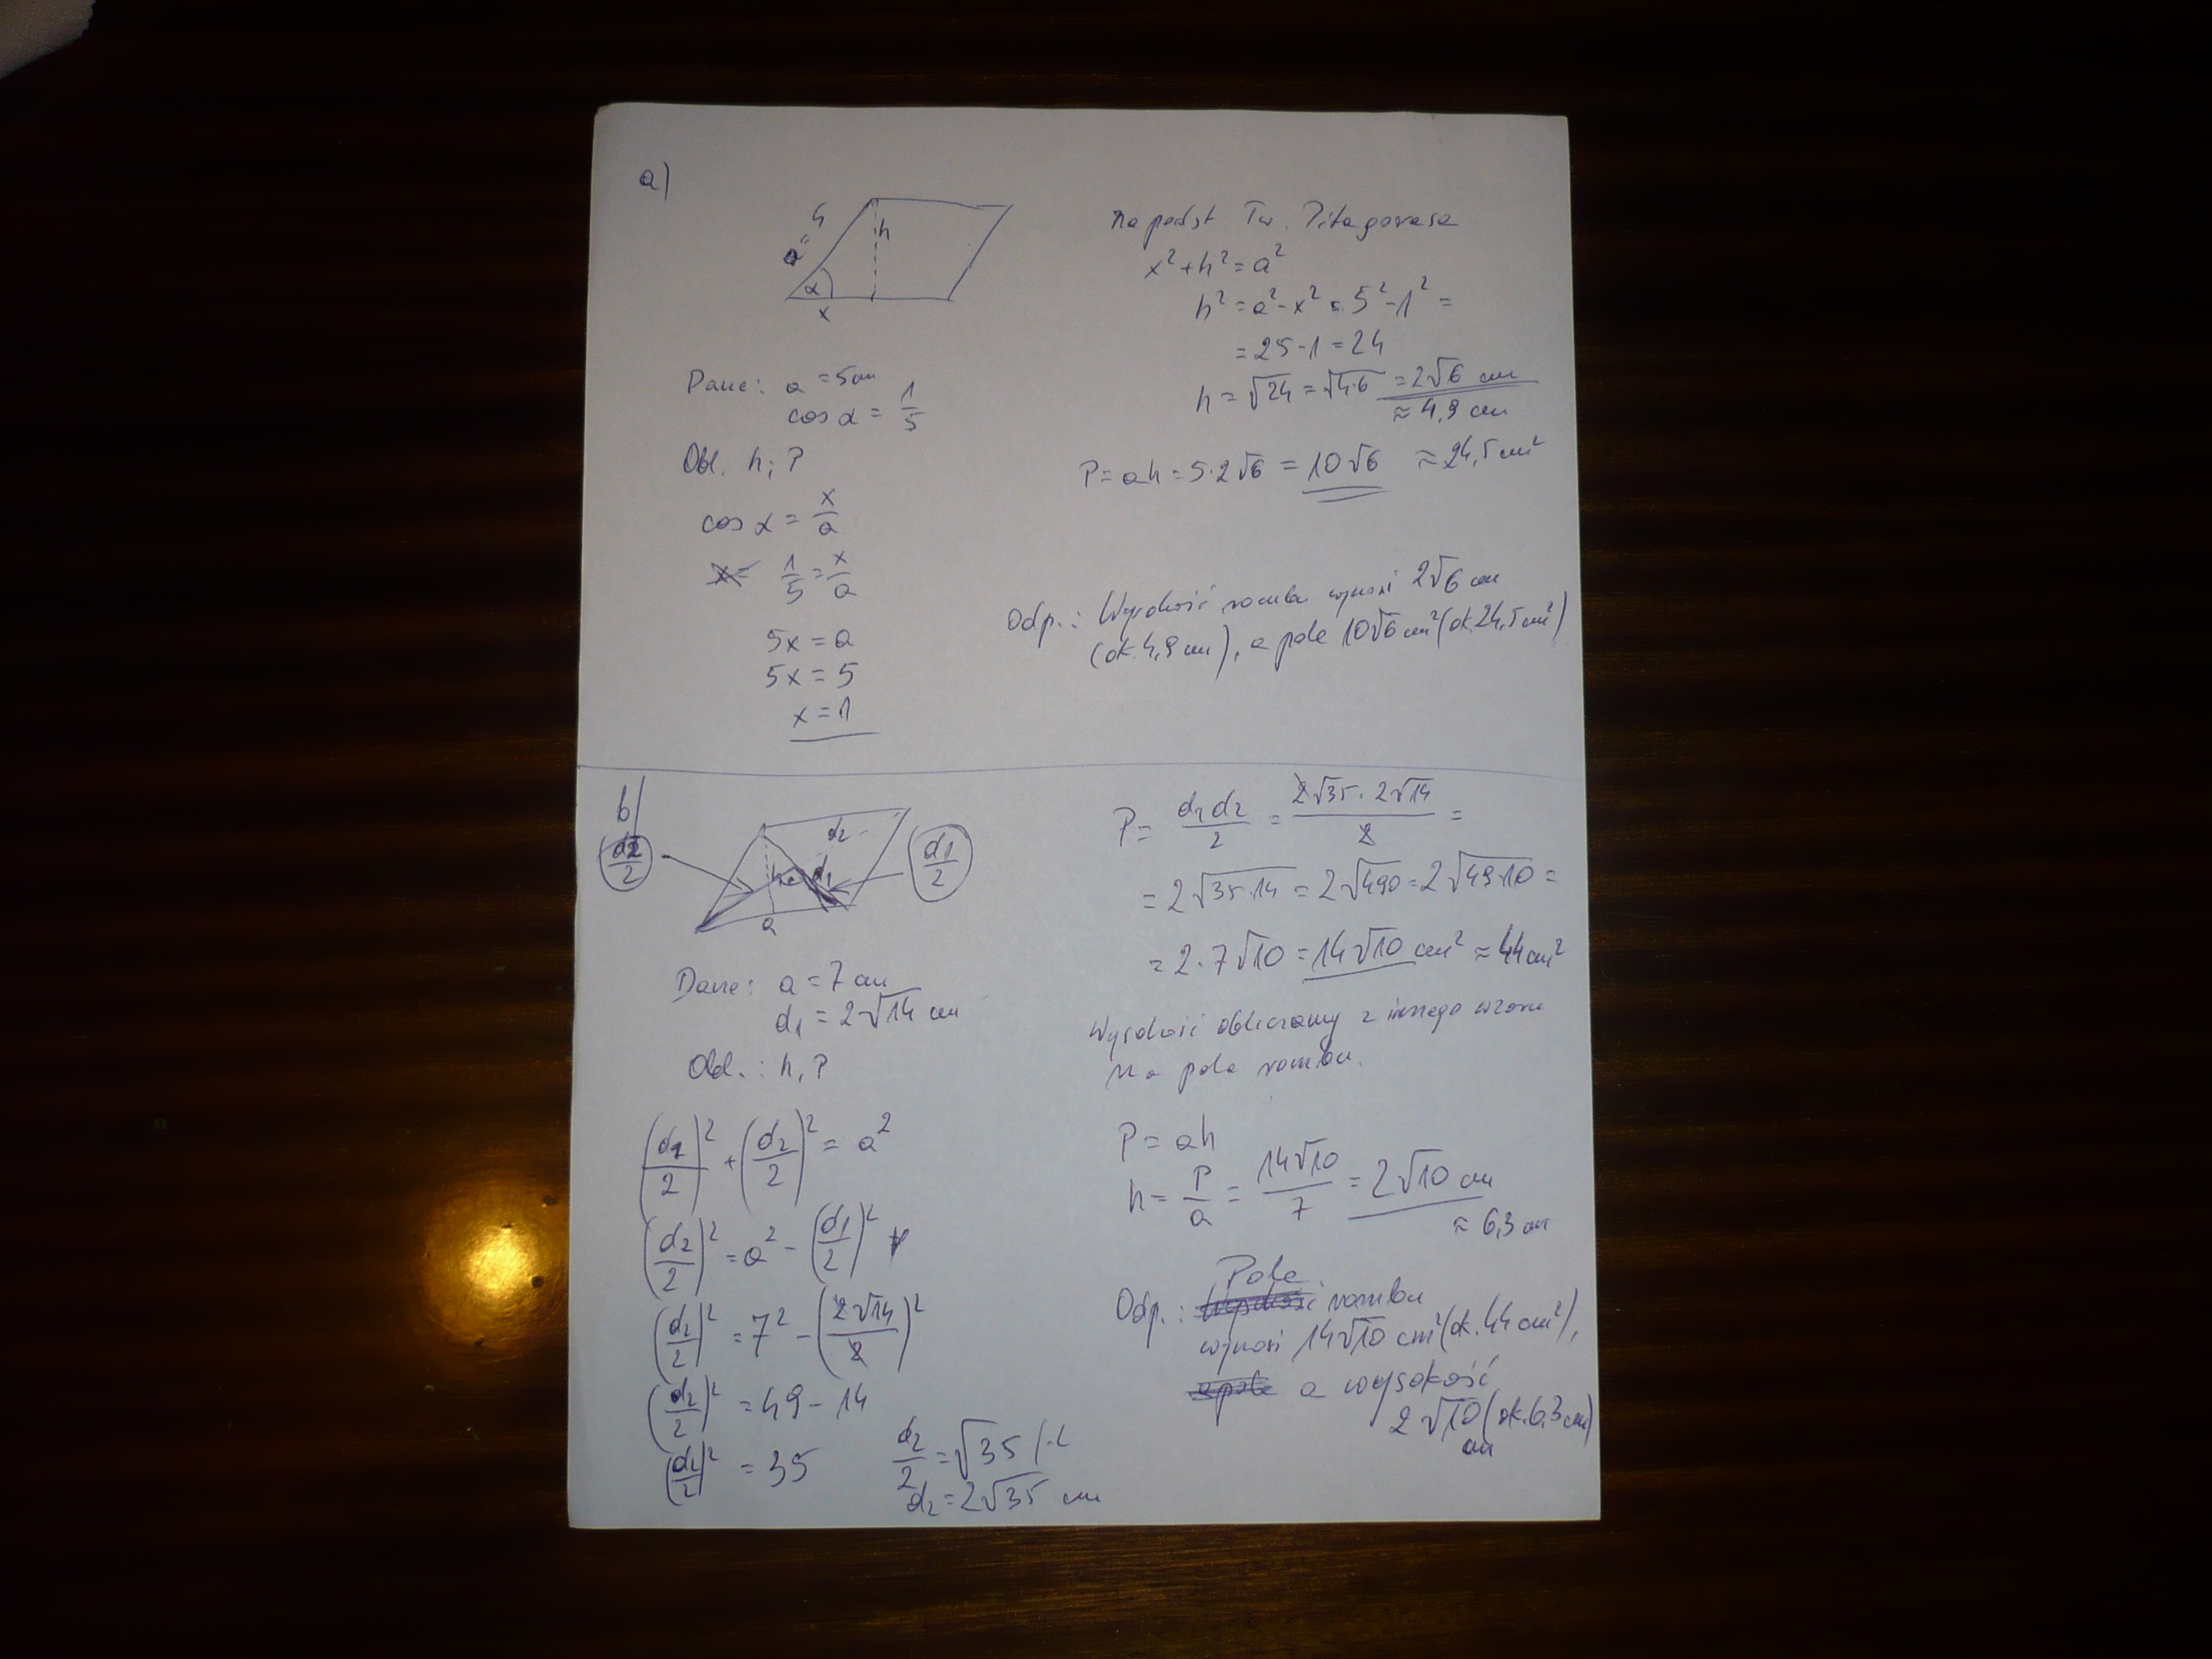 a)
a = 5
h
α
x
Dane: a = 5cm
cos α = 1/5
Obl. h; P
cos α = x/a
x= 1/5 = x/a
5x = a
5x = 5
x = 1
Na podst Tw. Pitagorasa
x² + h² = a²
h² = a² - x² = 5² - 1² =
= 25 - 1 = 24
h = √24 = √4·6 = 2√6 cm
≈ 4,9 cm
P = ah = 5·2√6 = 10√6 ≈ 24,5 cm²
Odp.: Wysokość rombu wynosi 2√6 cm
(ok. 4,9 cm), a pole 10√6 cm² (ok. 24,5 cm²)
b)
d2/2
d2
d1/2
h
d1
a
Dane: a = 7 cm
d1 = 2√14 cm
Obl.: h, P
(d1/2)² + (d2/2)² = a²
(d2/2)² = a² - (d1/2)²
(d2/2)² = 7² - (2√14/2)²
(d2/2)² = 49 - 14
(d2/2)² = 35
d2/2 = √35 /·2
d2 = 2√35 cm
P = d1d2/2 = 2√35 · 2√14/2 =
= 2√35·14 = 2√490 = 2√49·10 =
= 2·7√10 = 14√10 cm² ≈ 44 cm²
Wysokość obliczamy z innego wzoru
na pole rombu.
P = ah
h = P/a = 14√10/7 = 2√10 cm
≈ 6,3 cm
Pole
Odp.: Wysokość rombu
wynosi 14√10 cm² (ok. 44 cm²),
a pole a wysokość
2√10 (ok. 6,3 cm)
cm